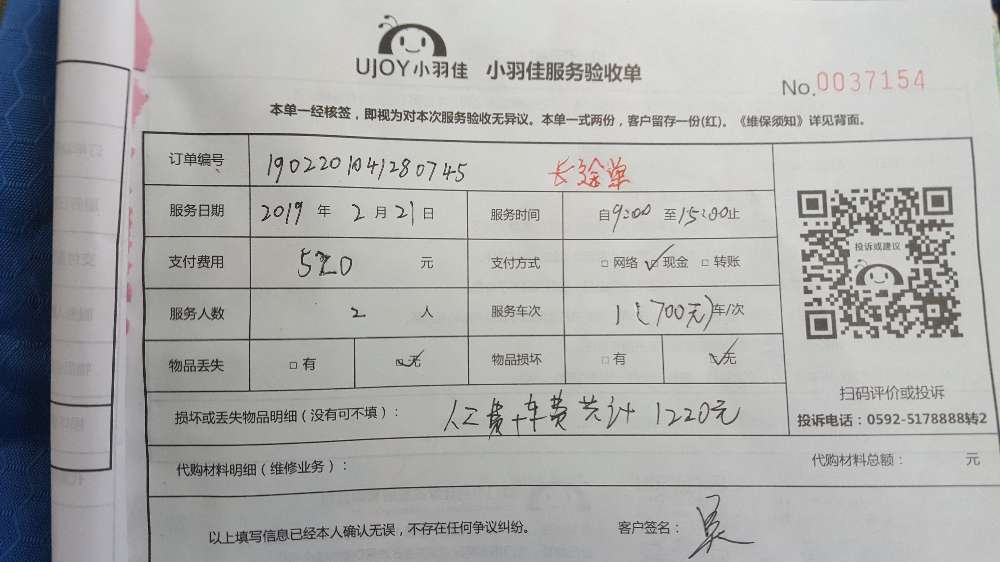 UJOY小羽佳 小羽佳服务验收单
No.0037154
本单一经核签，即视为对本次服务验收无异议。本单一式两份，客户留存一份(红)。《维保须知》详见背面。
订单编号 190220104128074​5 长途单
服务日期 2019 年 2 月 21 日 服务时间 自9:00 至15:00止
支付费用 520 元 支付方式 □网络 ☑现金 □转账
投诉或建议
服务人数 2 人 服务车次 1(700元)车/次
物品丢失 □有 ☑无 物品损坏 □有 ☑无
扫码评价或投诉
损坏或丢失物品明细（没有可不填）： 人工费+车费共计 1220元
投诉电话：0592-5178888转2
代购材料明细（维修业务）： 代购材料总额： 元
以上填写信息已经本人确认无误，不存在任何争议纠纷。 客户签名： 吴